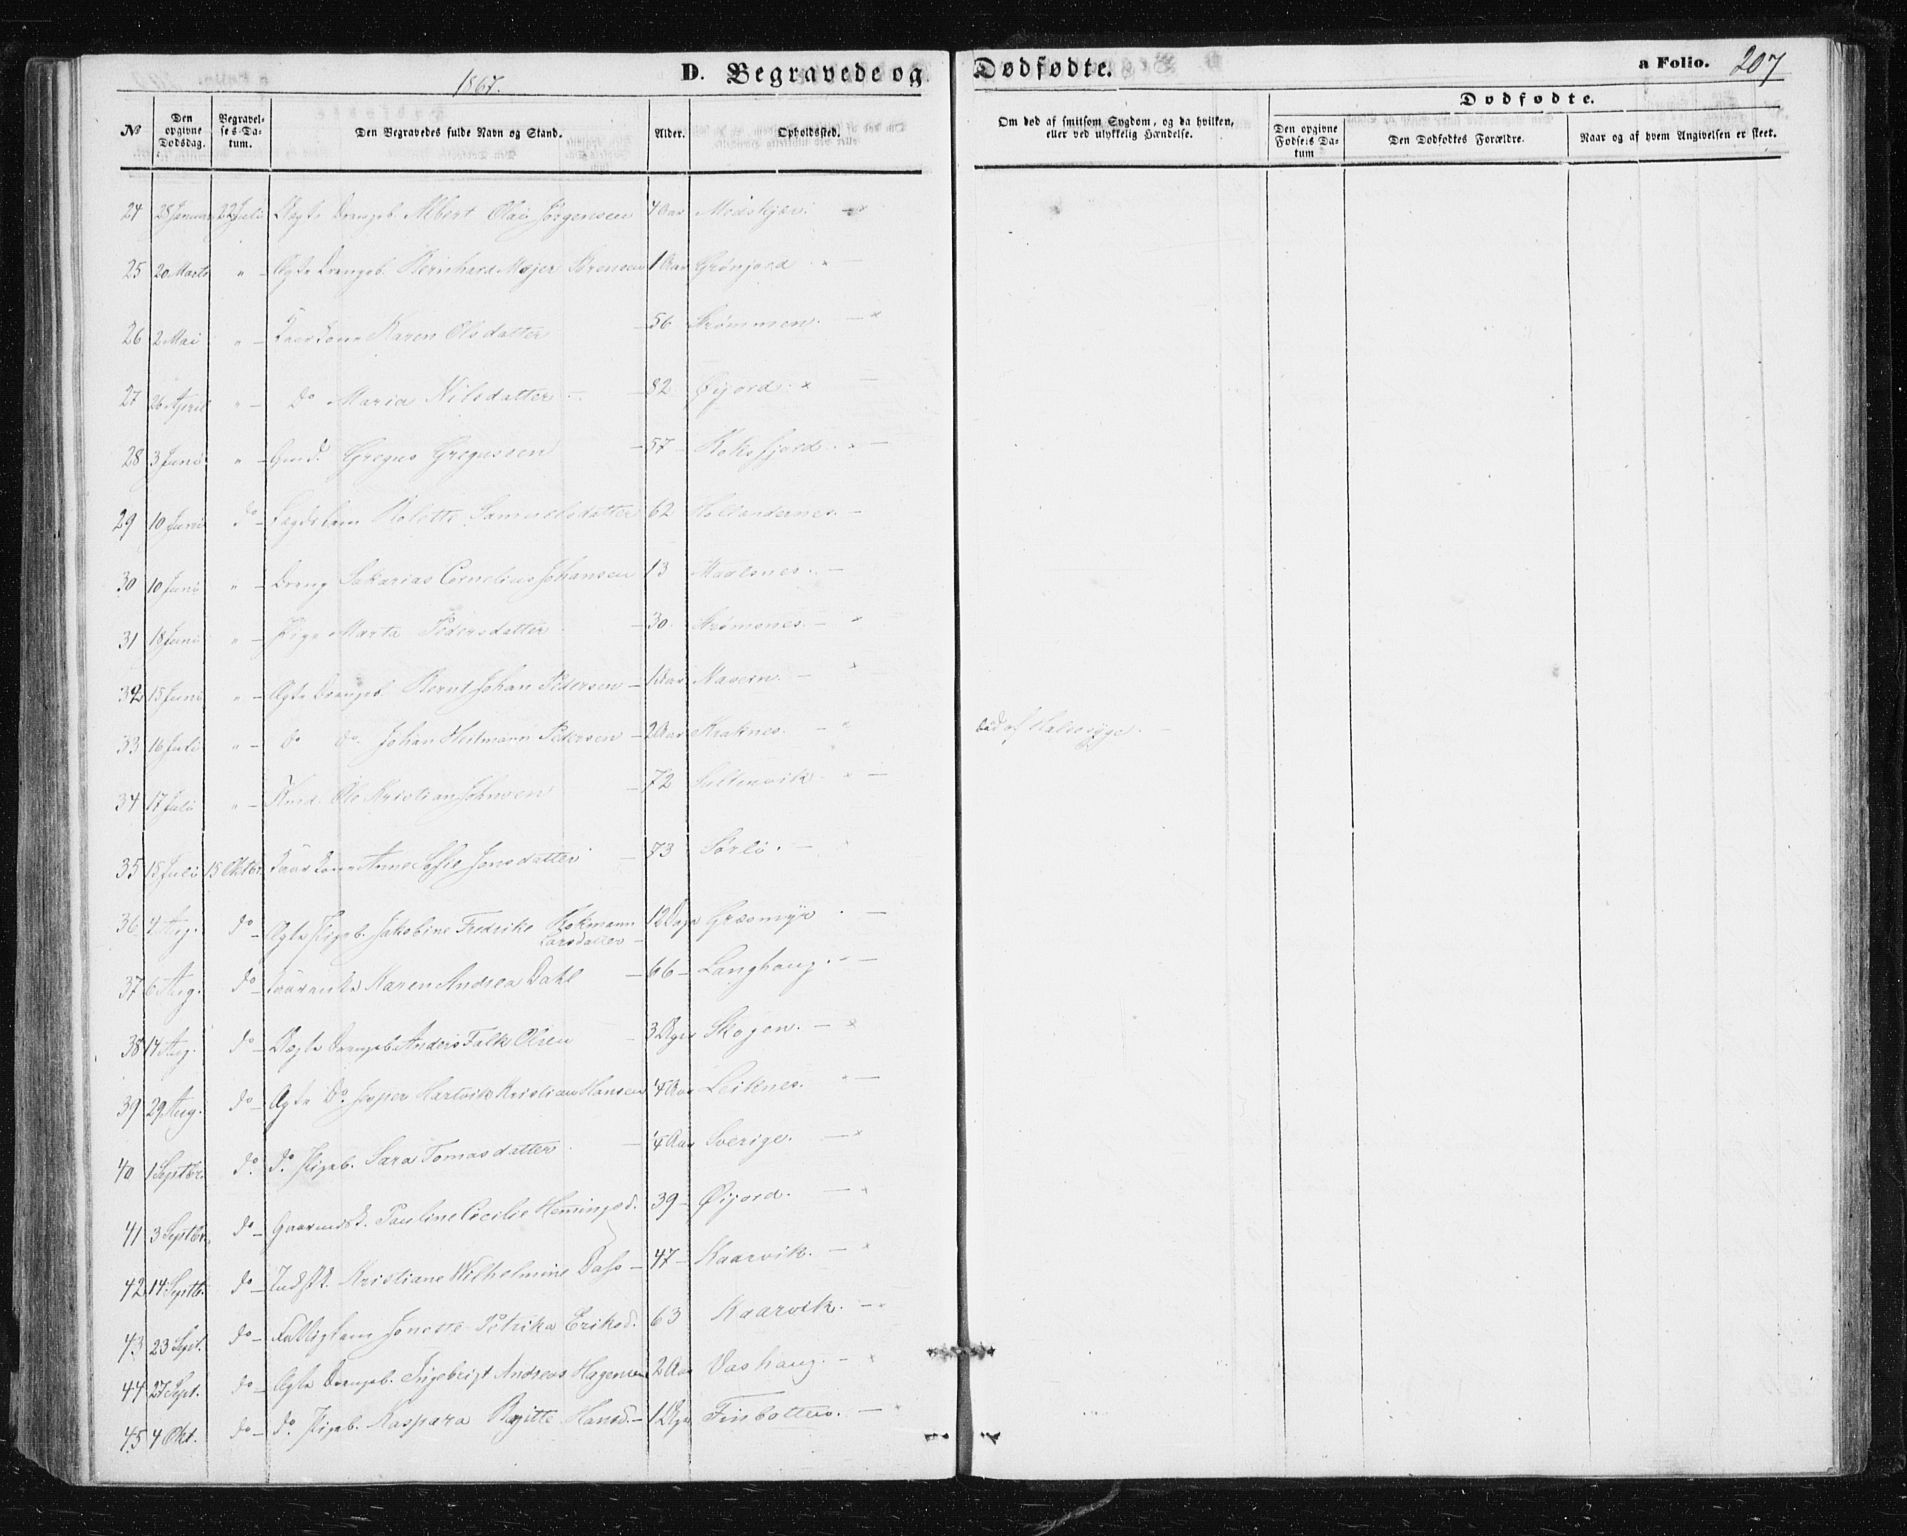 1867.
D. Begravede og Dødfødte.
a Folio. 207
Dødfødte.
No
Den opgivne Dødsdag.
Begravelses-Datum.
Den Begravedes fulde Navn og Stand.
Alder.
Opholdssted.
Om død af smitsom Sygdom, og da hvilken, eller ved ulykkelig Hændelse.
Den opgivne Fødsels Datum
Den Dødfødtes Forældre.
Naar og af hvem Angivelsen er skeet.
24 28 Januar 22 Juli Uægte Drengeb. Albert Olai Jørgensen 4 Aar
25 20 Marts " Ægte Drengeb. Bernhard Mejer Sørensen 1 Aar Grønjord
26 2 Mai " Kaarkone Karen Olsdatter 56 Strømmen.
27 26 April " Do Maria Nilsdatter 82 Øijord.
28 3 Juni " Gmd. Gregus Gregussen 57 Kokefjord
29 10 Juni Do Lægdslem Samuelsdatter 62 Hollendernes.
30 10 Juni " Dreng Sakarias Cornelius Johansen 13
31 18 Juni " Pige Marta Pedersdatter 30 Strømsnes.
32 15 Juni " Ægte Drengeb. Bernt Johan Pedersen 1 Aar
33 16 Juli " Do Do Johan Heitmann Pedersen 2 Aar Kraknes. Død af Halssyge.
34 17 Juli " Ole Kristian Johnsen 72 Sultenvik
35 15 Juli 15 Oktbr. Kaarkone Anne Sofie Jonsdatter 73 Sørli.
36 4 Aug. Do Ægte Pigeb. Jakobine Fredrike Larsdatter 12 Dage Græsmyr
37 6 Aug. Do Karen Andrea Dahl 66 Langhaug.
38 14 Aug. Do Uægte Drengeb. Anders Falk Olsen 3 Uger Skogen.
39 29 Aug. Do Ægte Do Jesper Hartvik Kristian Hansen 4 Aar Leiknes.
40 1 Septbr. Do. Do Pigeb. Sara Tomasdatter 4 Aar Sverige.
41 3 Septbr. Do Gaarmdsk. Pauline Cecilie Hemingsd. 39 Øijord.
42 14 Septbr. Do Indstk. Kristiane Wilhelmine Dass 47 Kaarvik.
43 23 Sept. Do Fattiglem Jonette Petrika Eriksd. 63 Kaarvik.
44 27 Sept. Do Ægte Drengeb. Ingebrigt Andreas Hagensen 2 Aar Vashaug.
45 4 Okt. Do Do Pigeb. Kaspara Birgitte Hansd. Finbotten.